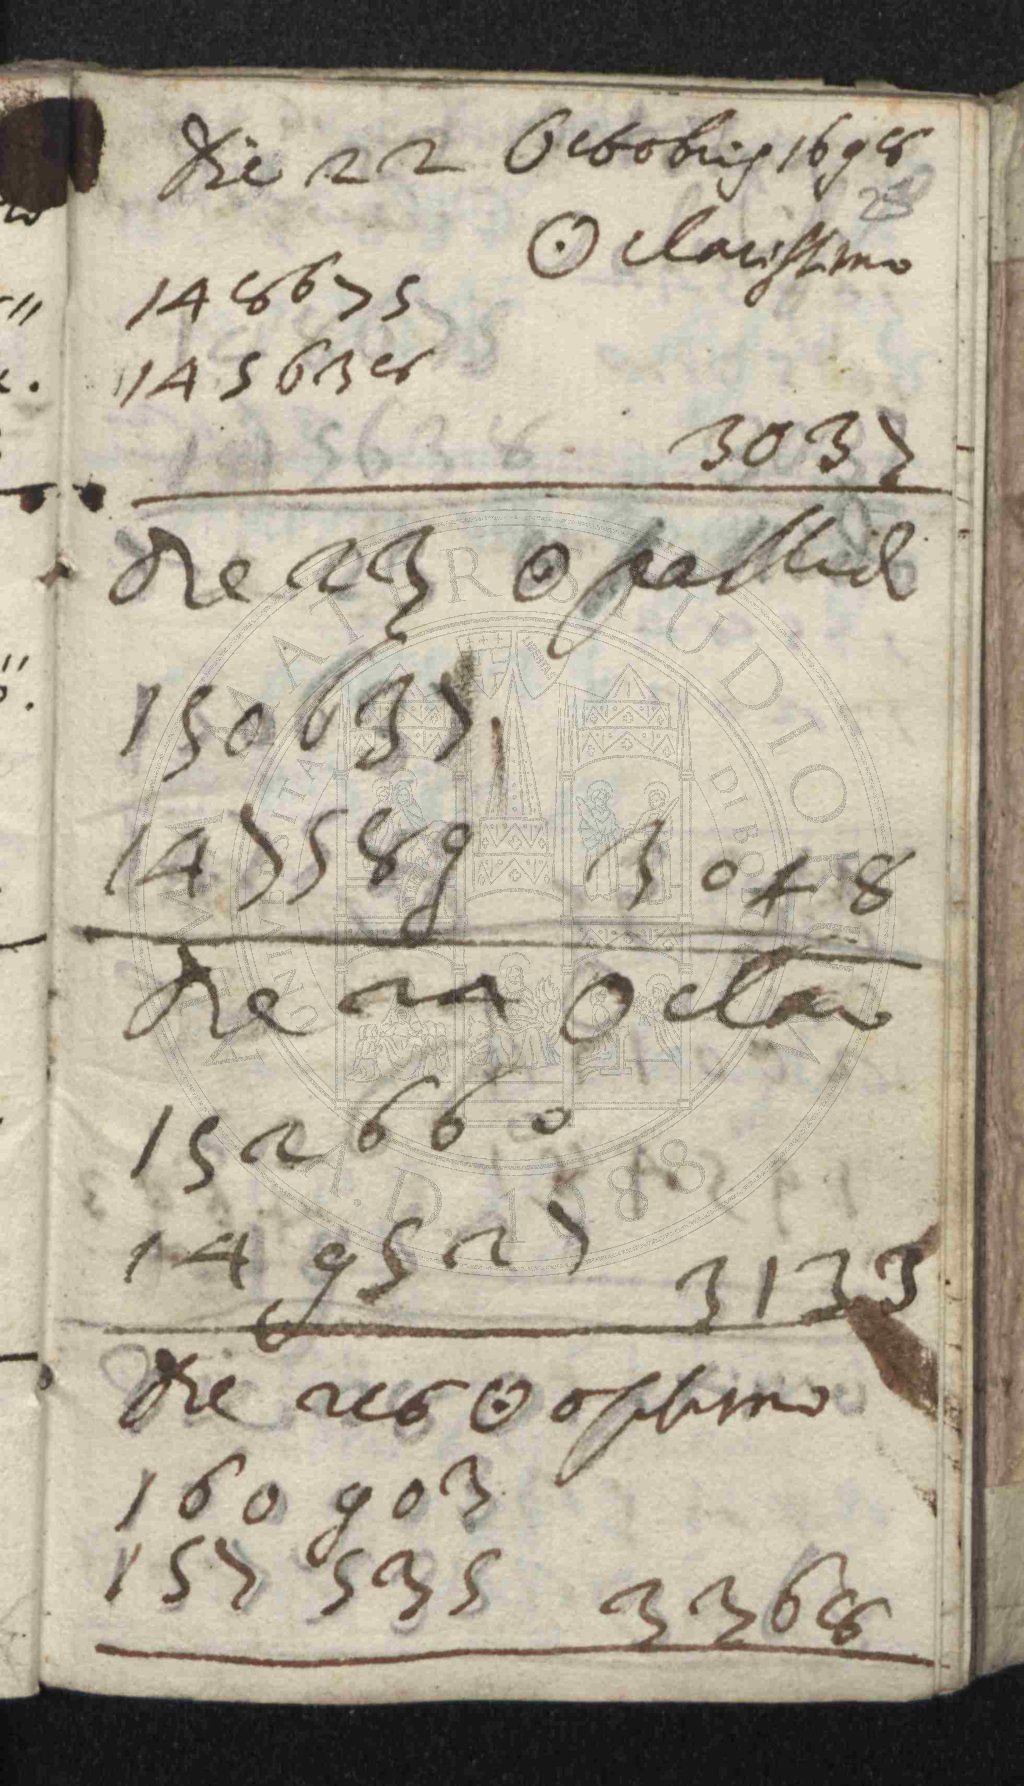 Die 22 Octobris 1698
28
☉ clarissimo
148675
145638
3037
Die 23 ☉ pallid
150637
147589 3048
Die 24 ☉ claro
152660
149527 3133
Die 28 ☉ optimo
160903
157535 3368
ALMA MATER STUDIORUM
A.D. 1088